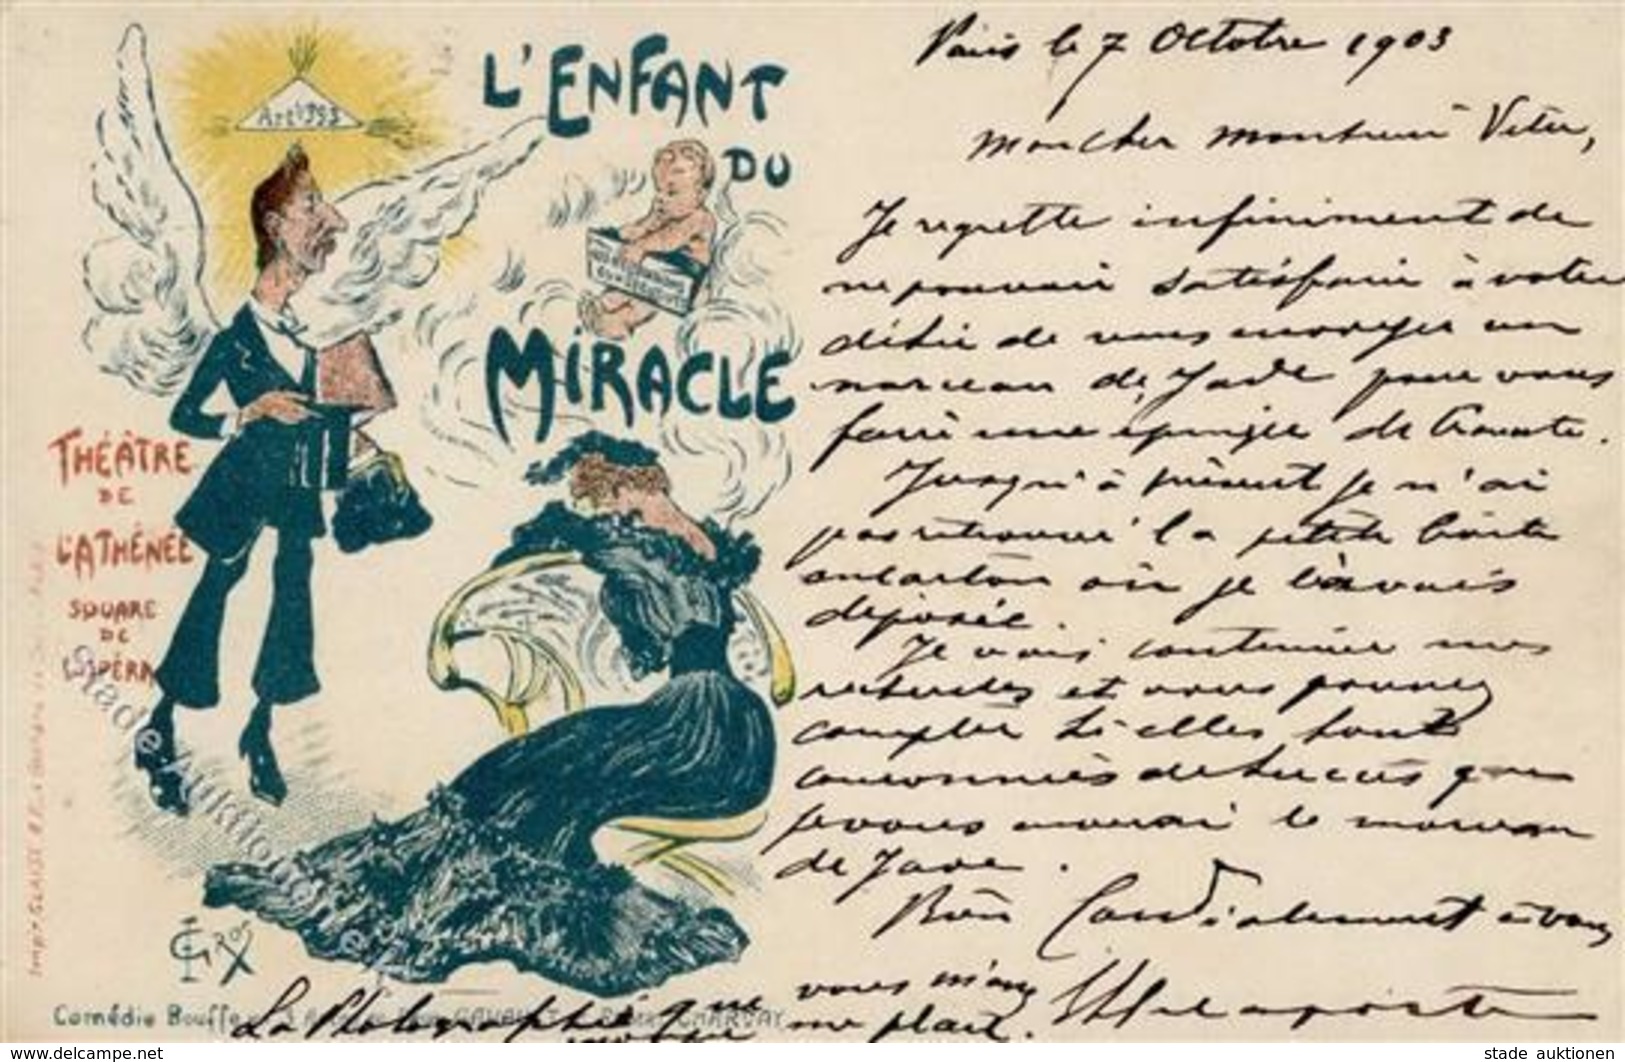 L'ENFANT
DU
MIRACLE
Art 393
THÉÂTRE
DE
L'ATHÉNÉE
SQUARE
DE
L'OPÉRA
Comédie Bouffe en 3 Actes de Paul GAVAULT & Robert CHARVAY
GROS
Paris le 7 Octobre 1903
Mon cher Monsieur
Je regrette infiniment de
ne pouvoir satisfaire à votre
désir de vous envoyer un
morceau de Jade pour vous
faire une épingle de Cravate.
Jusqu'à présent je n'ai
pas retrouvé la petite boite
en carton où je l'avais
déposée.
Je vais continuer mes
recherches et vous pouvez
compter si elles sont
couronnées de succès que
je vous enverrai le morceau
de Jade.
Bien Cordialement à vous
La Photographie que
vous m'avez
envoyée me plait.
Stade Auktionen
www.delcampe.net
stade auktionen